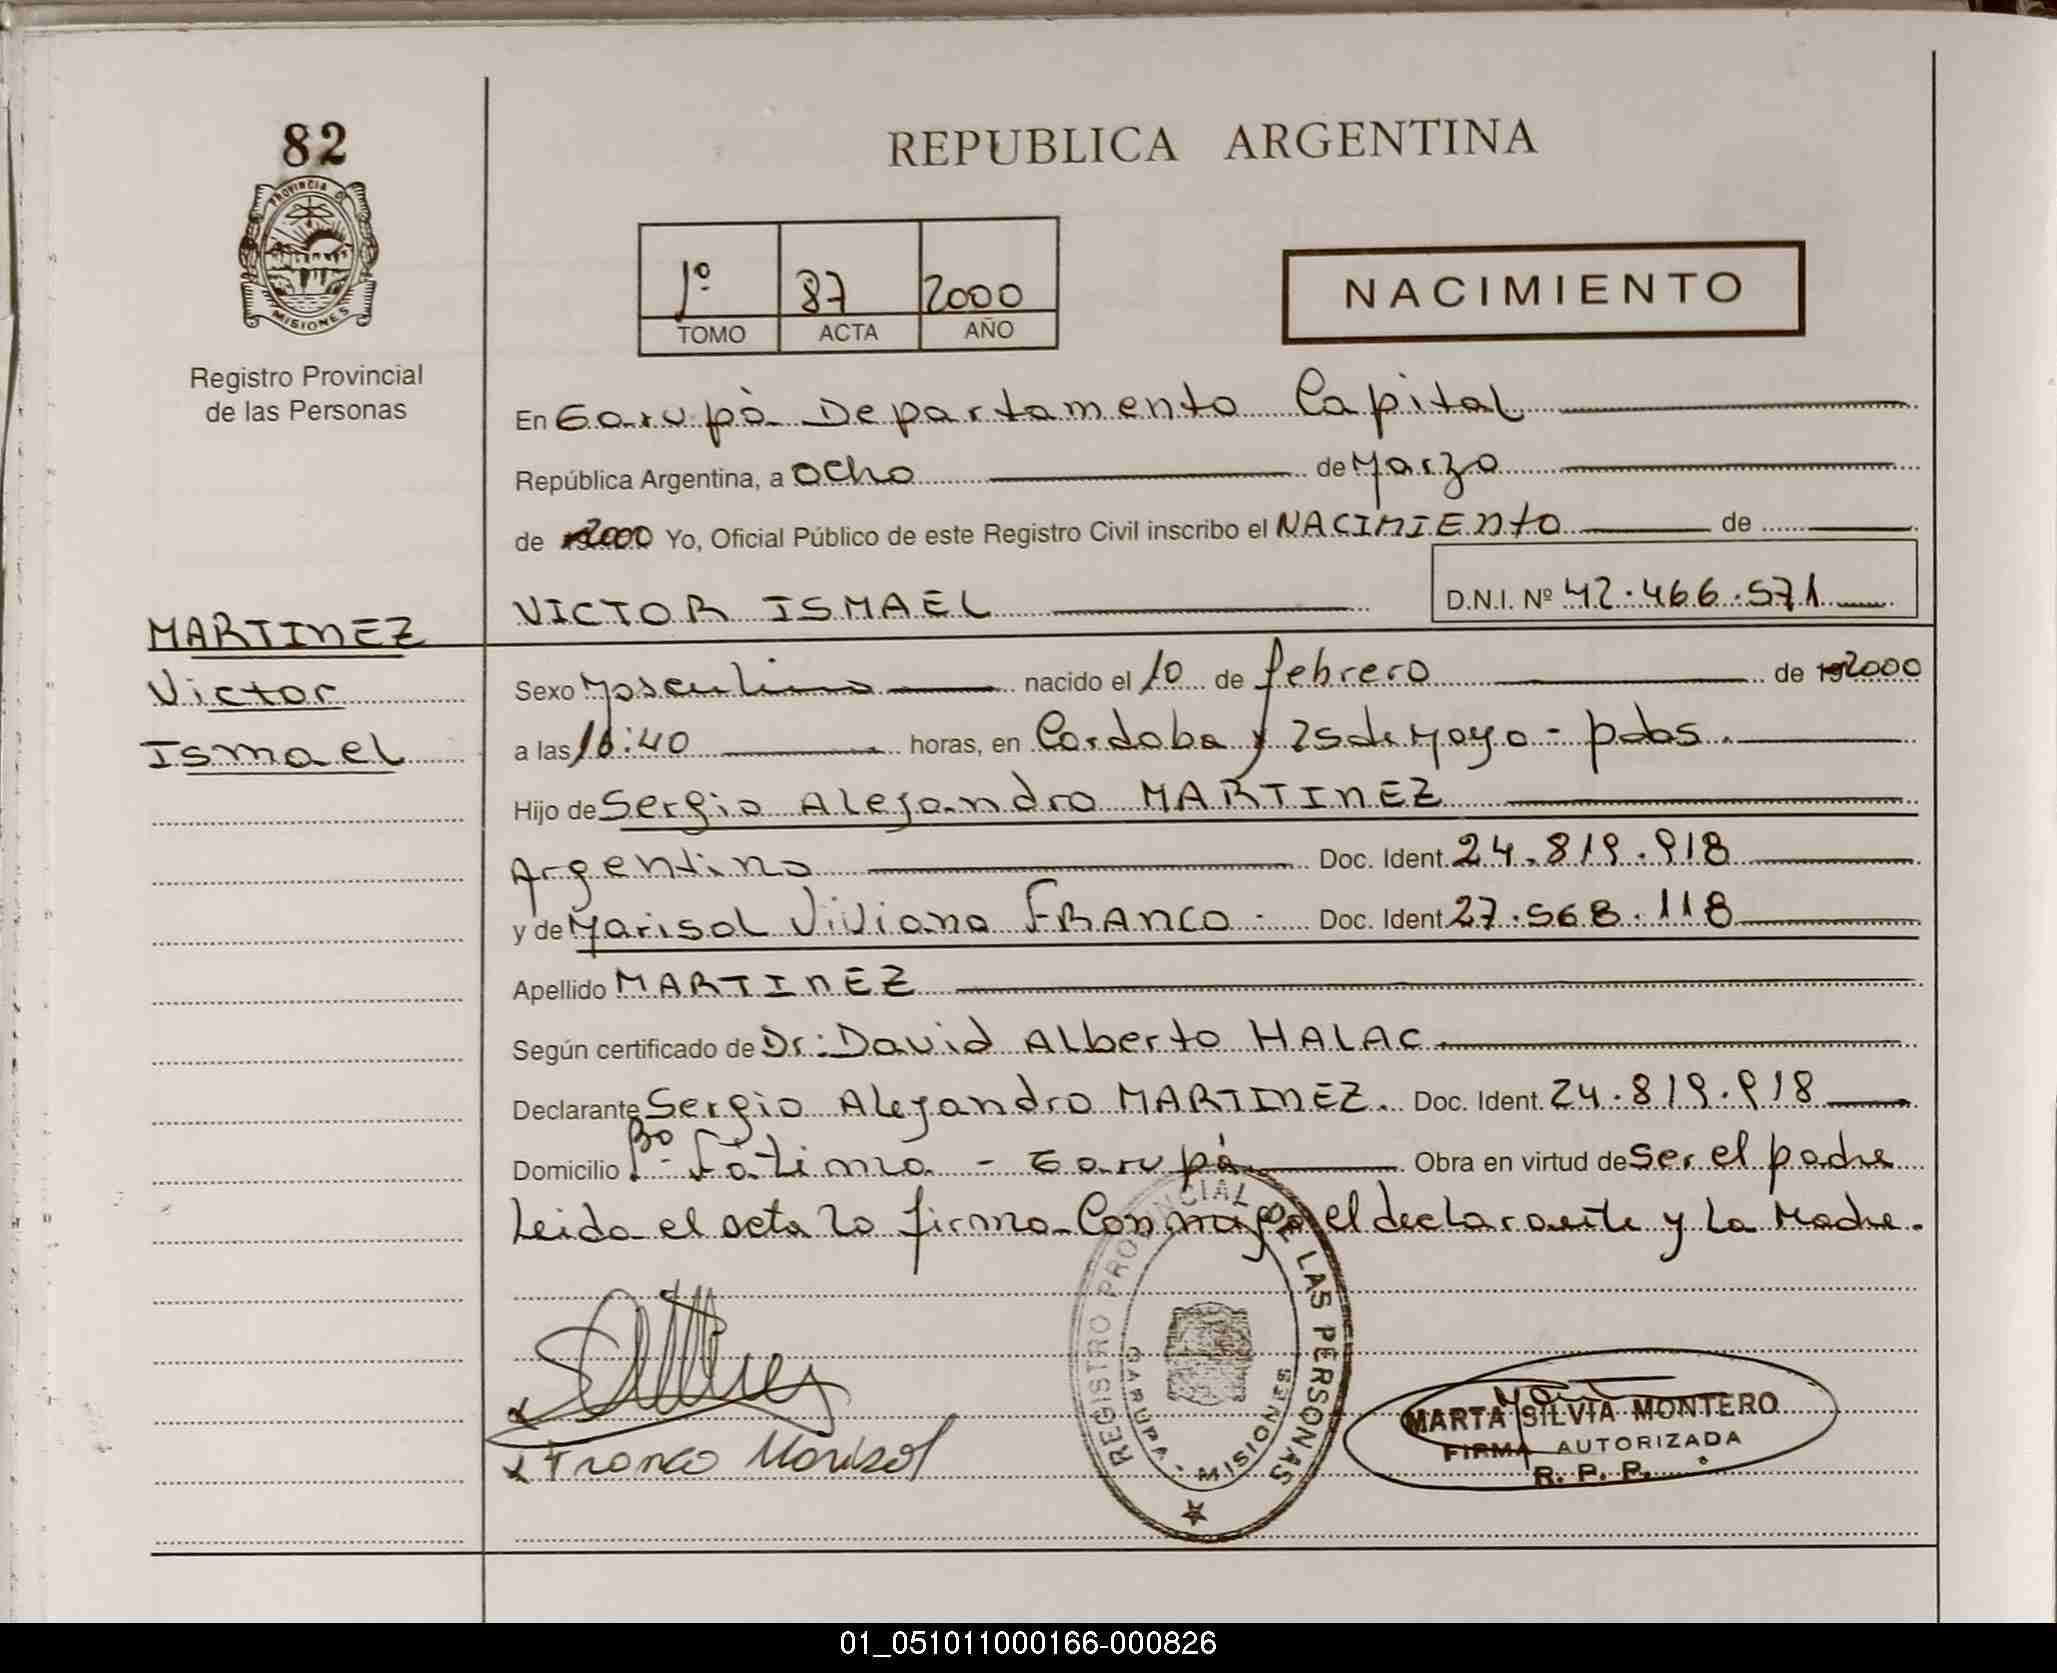 82
PROVINCIA DE
MISIONES
Registro Provincial
de las Personas
REPUBLICA ARGENTINA
1º 87 2000
TOMO ACTA AÑO
NACIMIENTO
En Garupà Departamento Capital
República Argentina, a ocho de Marzo
de 2000 Yo, Oficial Público de este Registro Civil inscribo el NACIMIENTO de
VICTOR ISMAEL D.N.I. Nº 42.466.571
MARTINEZ
Victor
Ismael
Sexo Masculino nacido el 10 de febrero de 192000
a las 16:40 horas, en Cordoba y 25 de Mayo - pdas.
Hijo de Sergio Alejandro MARTINEZ
Argentino Doc. Ident. 24.819.918
y de Marisol Viviana FRANCO. Doc. Ident. 27.568.118
Apellido MARTINEZ
Según certificado de Dr: David Alberto HALAC
Declarante Sergio Alejandro MARTINEZ. Doc. Ident. 24.819.918
Domicilio Bº Fàtima - Garupà Obra en virtud de ser el padre
Leida el acta la firma conmigo el declarante y La Madre.
REGISTRO PROVINCIAL DE LAS PERSONAS
GARUPA - MISIONES
Franco Marisol
MARTA SILVIA MONTERO
FIRMA AUTORIZADA
R. P. P.
01_051011000166-000826